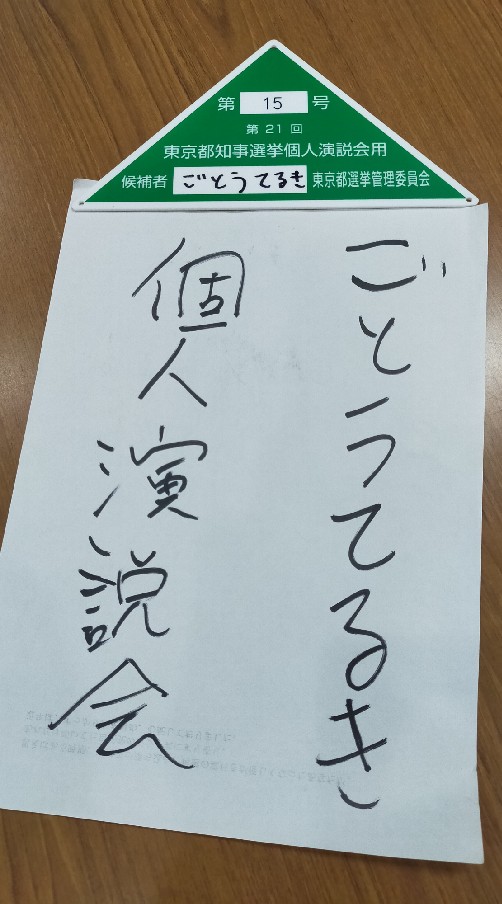 第 15 号
第21回
東京都知事選挙個人演説会用
候補者 ごとうてるき 東京都選挙管理委員会
ごとうてるき
個人演説会